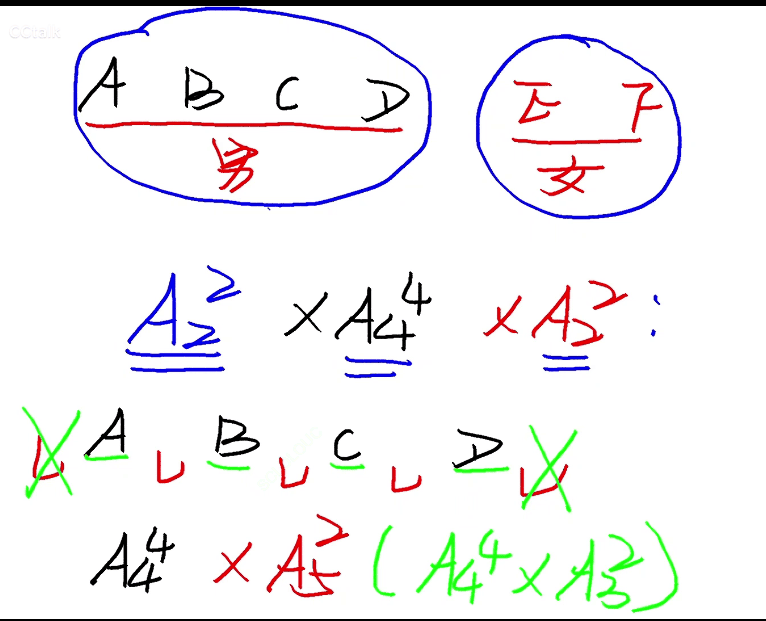 CCtalk
A B C D E F
男 女
A₂² × A₄⁴ × A₂² :
A B C D
A₄⁴ × A₅² ( A₄⁴ × A₃² )